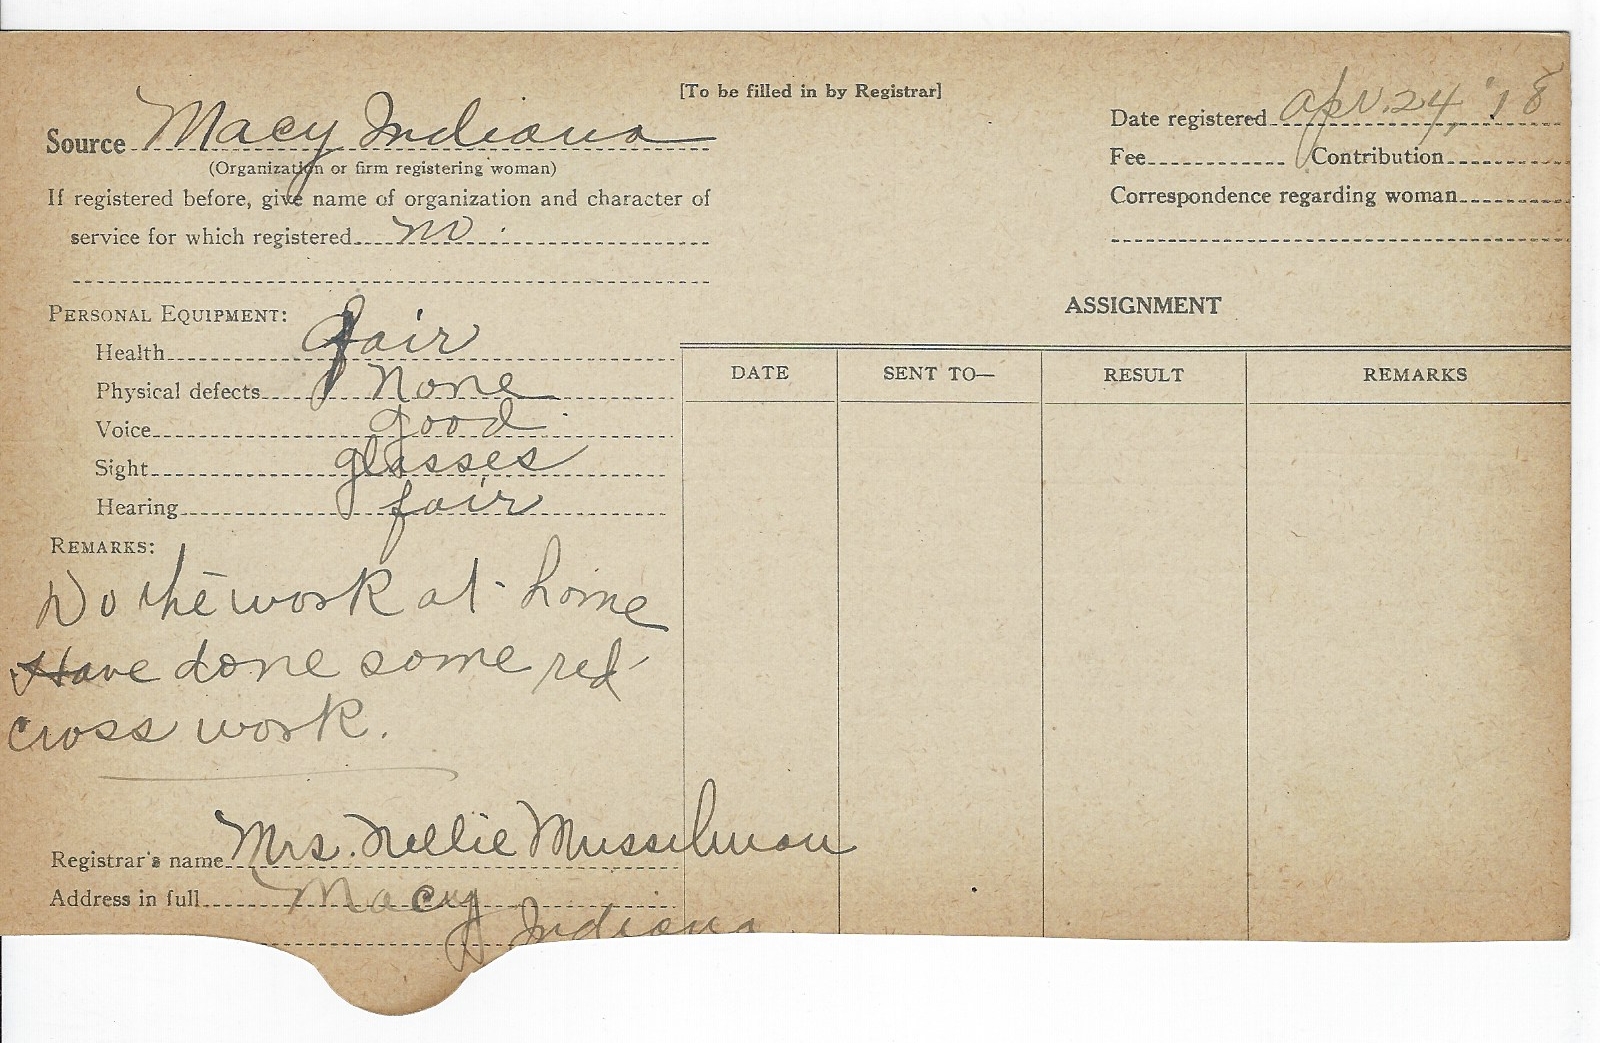 [To be filled in by Registrar]
Source Macy Indiana
(Organization or firm registering woman)
If registered before, give name of organization and character of
service for which registered no.
Date registered Apr. 24, '18
Fee Contribution
Correspondence regarding woman
PERSONAL EQUIPMENT:
Health fair
Physical defects none
Voice good
Sight glasses
Hearing fair
REMARKS:
Do the work at home
Have done some red
cross work.
Registrar's name Mrs. Nellie Musselman
Address in full Macy
Indiana
ASSIGNMENT
DATE SENT TO— RESULT REMARKS